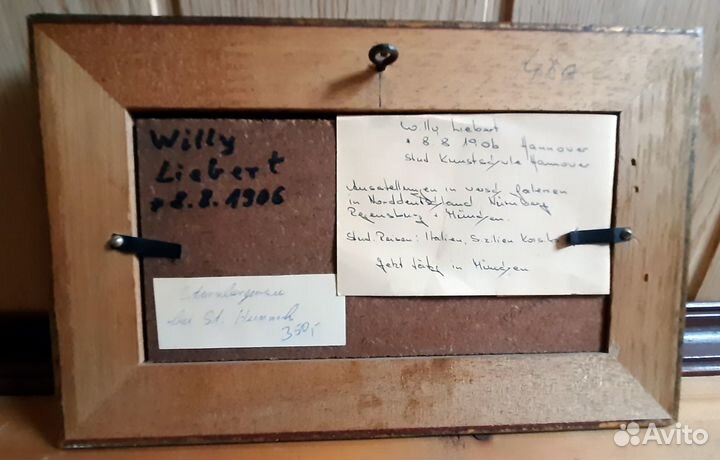 480
Willy
Liebert
* 8.8.1906
Willy Liebert
* 8 8 1906 Hannover
Stud Kunstschule Hannover
Ausstellungen in versch Galerien
in Norddeutschland Nürnberg
Regensburg + München.
Stud. Reisen: Italien, Sizilien Korsika
Jetzt tätig in München
bei St. Heinrich
350,-
Avito